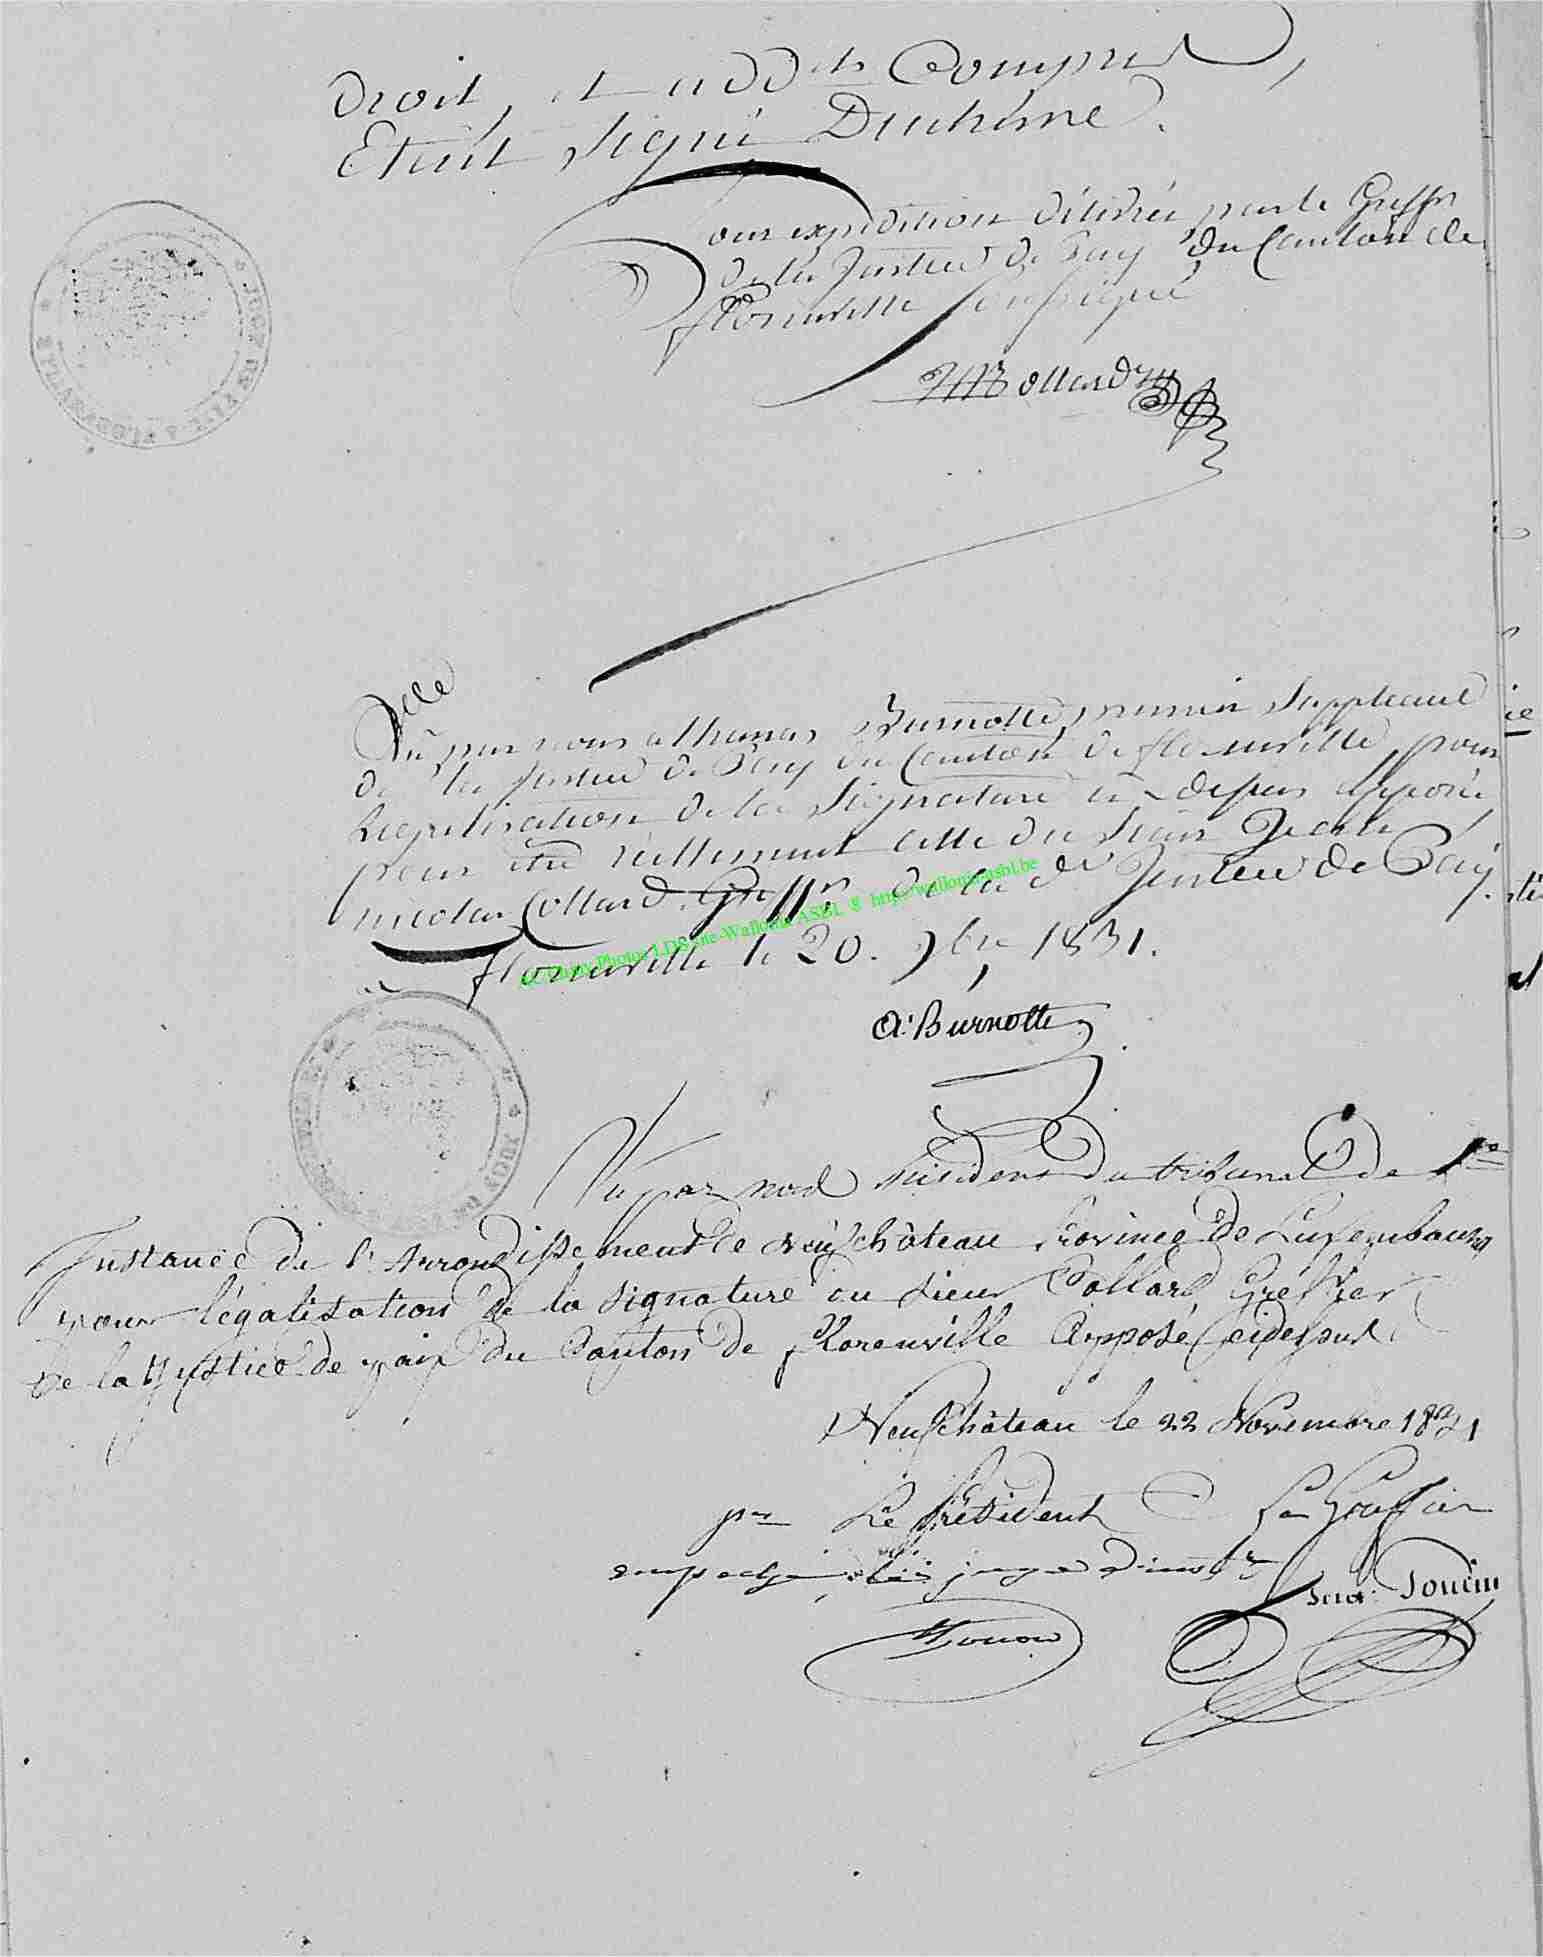 Droit, et addels Compris,
Etait signé Duchêne.
Pour expédition délivrée par le Greffr
de la Justice de Paix du Canton de
florenville soussigné
Collard
Vu par nous athanas Burnotte, premier Suppléant
de la Justice de Paix du Canton de florenville, pour
légalisation de la Signature ci-dessus apposée,
pour être réellement celle du Sieur Jean
nicolas Collard, Greffr, de la de Justice de Paix.
a florenville le 20. 9bre 1831.
http://wallonia-asbl.be
A. Burnotte
Vu par nous président du tribunal de 1re
Instance de l'Arrondissement de Neufchâteau province de Luxembourg
pour légalisation de la signature du sieur Collard Greffier
de la Justice de paix du Canton de florenville Apposé cidessus
Neufchâteau le 22 Novembre 1831
pr Le Président Le Greffier
empeché, le juge d'instr